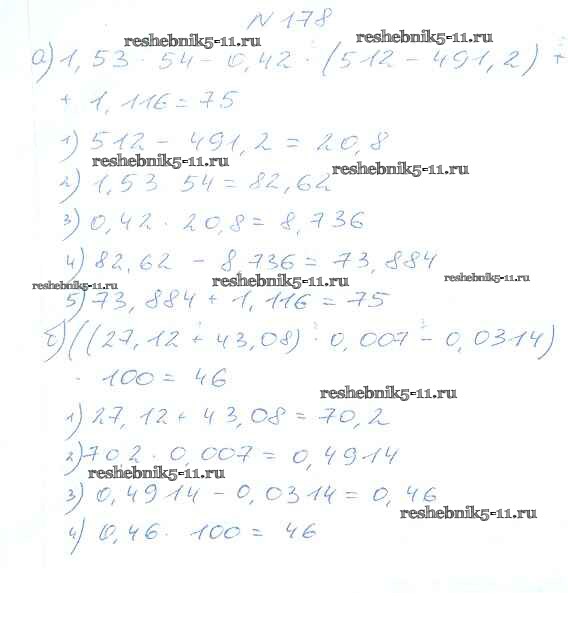 N 178
reshebnik5-11.ru reshebnik5-11.ru
а) 1,53 · 54 - 0,42 · (512 - 491,2) +
+ 1,116 = 75
1) 512 - 491,2 = 20,8
reshebnik5-11.ru reshebnik5-11.ru
2) 1,53 54 = 82,62
3) 0,42 · 20,8 = 8,736
4) 82,62 - 8,736 = 73,884
reshebnik5-11.ru reshebnik5-11.ru reshebnik5-11.ru
5) 73,884 + 1,116 = 75
б) ((27,12 + 43,08) · 0,007 - 0,0314)
· 100 = 46
reshebnik5-11.ru
1) 27,12 + 43,08 = 70,2
2) 70,2 · 0,007 = 0,4914
reshebnik5-11.ru
3) 0,4914 - 0,0314 = 0,46
reshebnik5-11.ru
4) 0,46 · 100 = 46